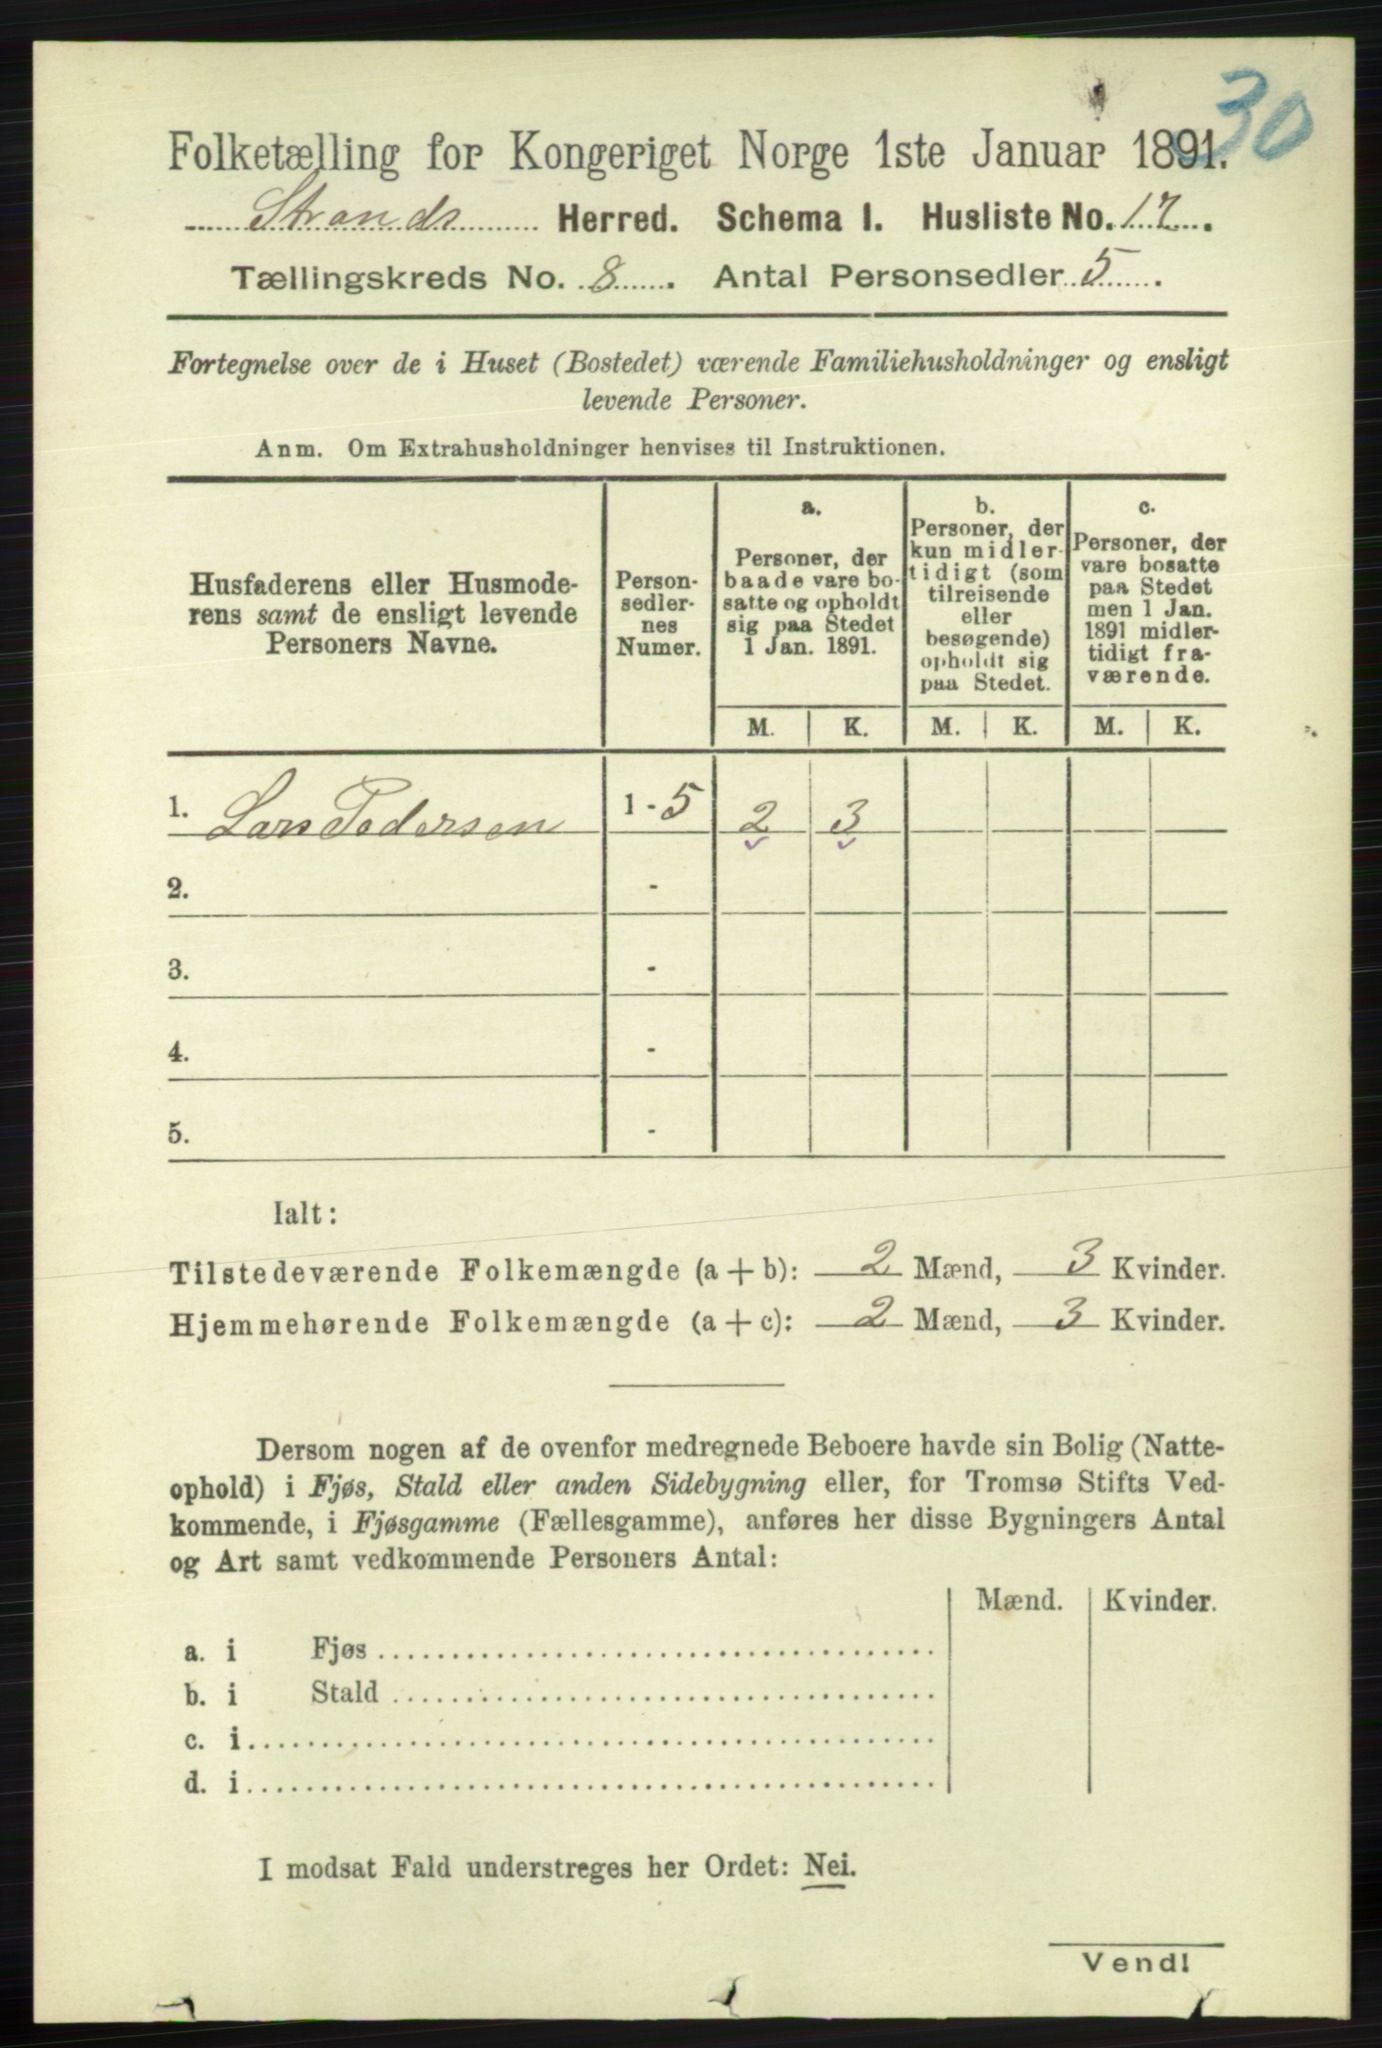 30
Folketælling for Kongeriget Norge 1ste Januar 1891.
Strands Herred. Schema I. Husliste No. 17.
Tællingskreds No. 8. Antal Personsedler 5.
Fortegnelse over de i Huset (Bostedet) værende Familiehusholdninger og ensligt
levende Personer.
Anm. Om Extrahusholdninger henvises til Instruktionen.
Husfaderens eller Husmode-
rens samt de ensligt levende
Personers Navne.
Person-
sedler-
nes
Numer.
a.
Personer, der
baade vare bo-
satte og opholdt
sig paa Stedet
1 Jan. 1891.
b.
Personer, der
kun midler-
tidigt (som
tilreisende
eller
besøgende)
opholdt sig
paa Stedet.
c.
Personer, der
vare bosatte
paa Stedet
men 1 Jan.
1891 midler-
tidigt fra-
værende.
M. K. M. K. M. K.
1. Lars Pedersen 1 - 5 2 3
2. -
3. -
4. -
5. -
Ialt:
Tilstedeværende Folkemængde (a + b): 2 Mænd, 3 Kvinder.
Hjemmehørende Folkemængde (a + c): 2 Mænd, 3 Kvinder.
Dersom nogen af de ovenfor medregnede Beboere havde sin Bolig (Natte-
ophold) i Fjøs, Stald eller anden Sidebygning eller, for Tromsø Stifts Ved-
kommende, i Fjøsgamme (Fællesgamme), anføres her disse Bygningers Antal
og Art samt vedkommende Personers Antal:
Mænd. Kvinder.
a. i Fjøs
b. i Stald
c. i
d. i
I modsat Fald understreges her Ordet: Nei.
Vend!